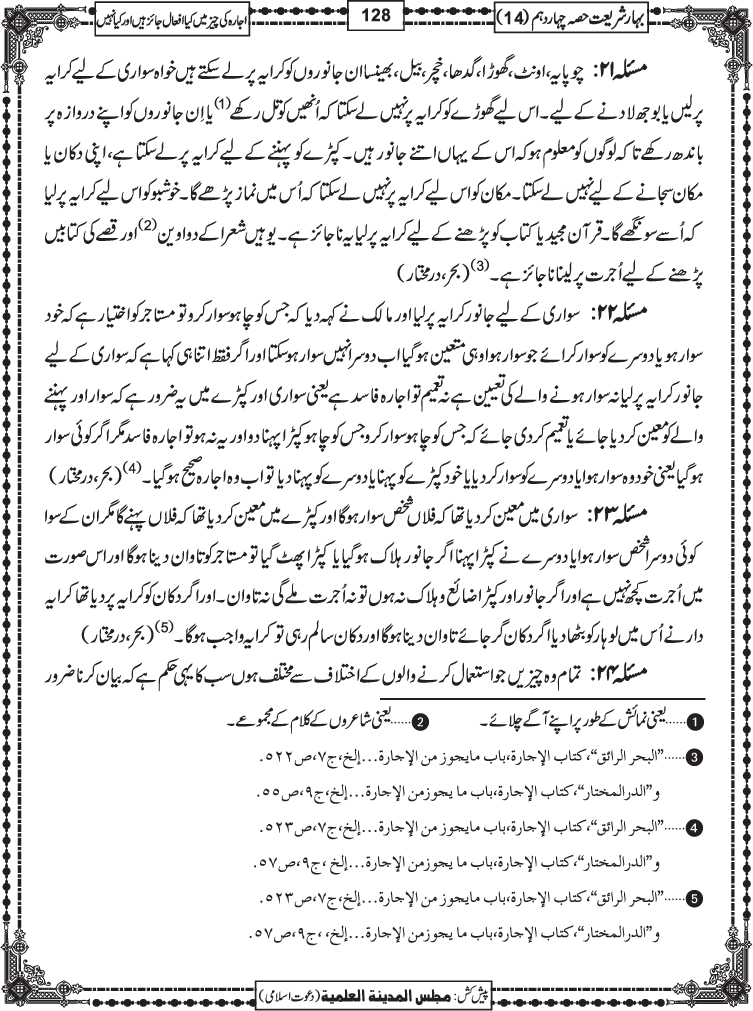 بہار شریعت حصہ چہاردہم (14)
128
اجارہ کی چیز میں کیا افعال جائز ہیں اور کیا نہیں
مسئلہ ۲۱: چوپایہ، اونٹ، گھوڑا، گدھا، خچر، بیل، بھینسا ان جانوروں کو کرایہ پر لے سکتے ہیں خواہ سواری کے لیے کرایہ
پر لیں یا بوجھ لادنے کے لیے۔ اس لیے گھوڑے کو کرایہ پر نہیں لے سکتا کہ اُنھیں کوتل رکھے (1) یا اِن جانوروں کو اپنے دروازہ پر
باندھ رکھے تاکہ لوگوں کو معلوم ہو کہ اس کے یہاں اتنے جانور ہیں۔ کپڑے کو پہننے کے لیے کرایہ پر لے سکتا ہے، اپنی دکان یا
مکان سجانے کے لیے نہیں لے سکتا۔ مکان کو اس لیے کرایہ پر نہیں لے سکتا کہ اُس میں نماز پڑھے گا۔ خوشبو کو اس لیے کرایہ پر لیا
کہ اُسے سونگھے گا۔ قرآن مجید یا کتاب کو پڑھنے کے لیے کرایہ پر لیا یہ ناجائز ہے۔ یوہیں شعرا کے دواوین (2) اور قصے کی کتابیں
پڑھنے کے لیے اُجرت پر لینا ناجائز ہے۔ (3) (بحر، درمختار)
مسئلہ ۲۲: سواری کے لیے جانور کرایہ پر لیا اور مالک نے کہہ دیا کہ جس کو چاہو سوار کرو تو مستاجر کو اختیار ہے کہ خود
سوار ہو یا دوسرے کو سوار کرائے جو سوار ہوا وہی متعین ہوگیا اب دوسرا نہیں سوار ہوسکتا اور اگر فقط اتنا ہی کہا ہے کہ سواری کے لیے
جانور کرایہ پر لیا نہ سوار ہونے والے کی تعیین ہے نہ تعمیم تو اجارہ فاسد ہے یعنی سواری اور کپڑے میں یہ ضرور ہے کہ سوار اور پہننے
والے کو معین کر دیا جائے یا تعمیم کر دی جائے کہ جس کو چاہو سوار کرو جس کو چاہو کپڑا پہنا دو اور یہ نہ ہو تو اجارہ فاسد مگر اگر کوئی سوار
ہوگیا یعنی خود وہ سوار ہوا یا دوسرے کو سوار کر دیا یا خود کپڑے کو پہنا یا دوسرے کو پہنا دیا تو اب وہ اجارہ صحیح ہوگیا۔ (4) (بحر، درمختار)
مسئلہ ۲۳: سواری میں معین کر دیا تھا کہ فلاں شخص سوار ہوگا اور کپڑے میں معین کر دیا تھا کہ فلاں پہنے گا مگر ان کے سوا
کوئی دوسرا شخص سوار ہوا یا دوسرے نے کپڑا پہنا اگر جانور ہلاک ہوگیا یا کپڑا پھٹ گیا تو مستاجر کو تاوان دینا ہوگا اور اس صورت
میں اُجرت کچھ نہیں ہے اور اگر جانور اور کپڑا ضائع و ہلاک نہ ہوں تو نہ اُجرت ملے گی نہ تاوان۔ اور اگر دکان کو کرایہ پر دیا تھا کرایہ
دار نے اُس میں لوہار کو بٹھا دیا اگر دکان گر جائے تاوان دینا ہوگا اور دکان سالم رہی تو کرایہ واجب ہوگا۔ (5) (بحر، درمختار)
مسئلہ ۲۴: تمام وہ چیزیں جو استعمال کرنے والوں کے اختلاف سے مختلف ہوں سب کا یہی حکم ہے کہ بیان کرنا ضرور
1 ......یعنی نمائش کے طور پر اپنے آگے چلائے۔ 2 ......یعنی شاعروں کے کلام کے مجموعے۔
3 ......”البحر الرائق“، کتاب الإجارة، باب مایجوز من الإجارة...إلخ، ج۷، ص۵۲۲.
و”الدرالمختار“، کتاب الإجارة، باب ما یجوزمن الإجارة...إلخ، ج۹، ص۵۵.
4 ......”البحر الرائق“، کتاب الإجارة، باب مایجوز من الإجارة...إلخ، ج۷، ص۵۲۳.
و”الدرالمختار“، کتاب الإجارة، باب ما یجوزمن الإجارة...إلخ، ج۹، ص۵۷.
5 ......”البحر الرائق“، کتاب الإجارة، باب مایجوز من الإجارة...إلخ، ج۷، ص۵۲۳.
و”الدرالمختار“، کتاب الإجارة، باب ما یجوزمن الإجارة...إلخ، ، ج۹، ص۵۷.
پیش کش: مجلس المدینة العلمیة (دعوت اسلامی)